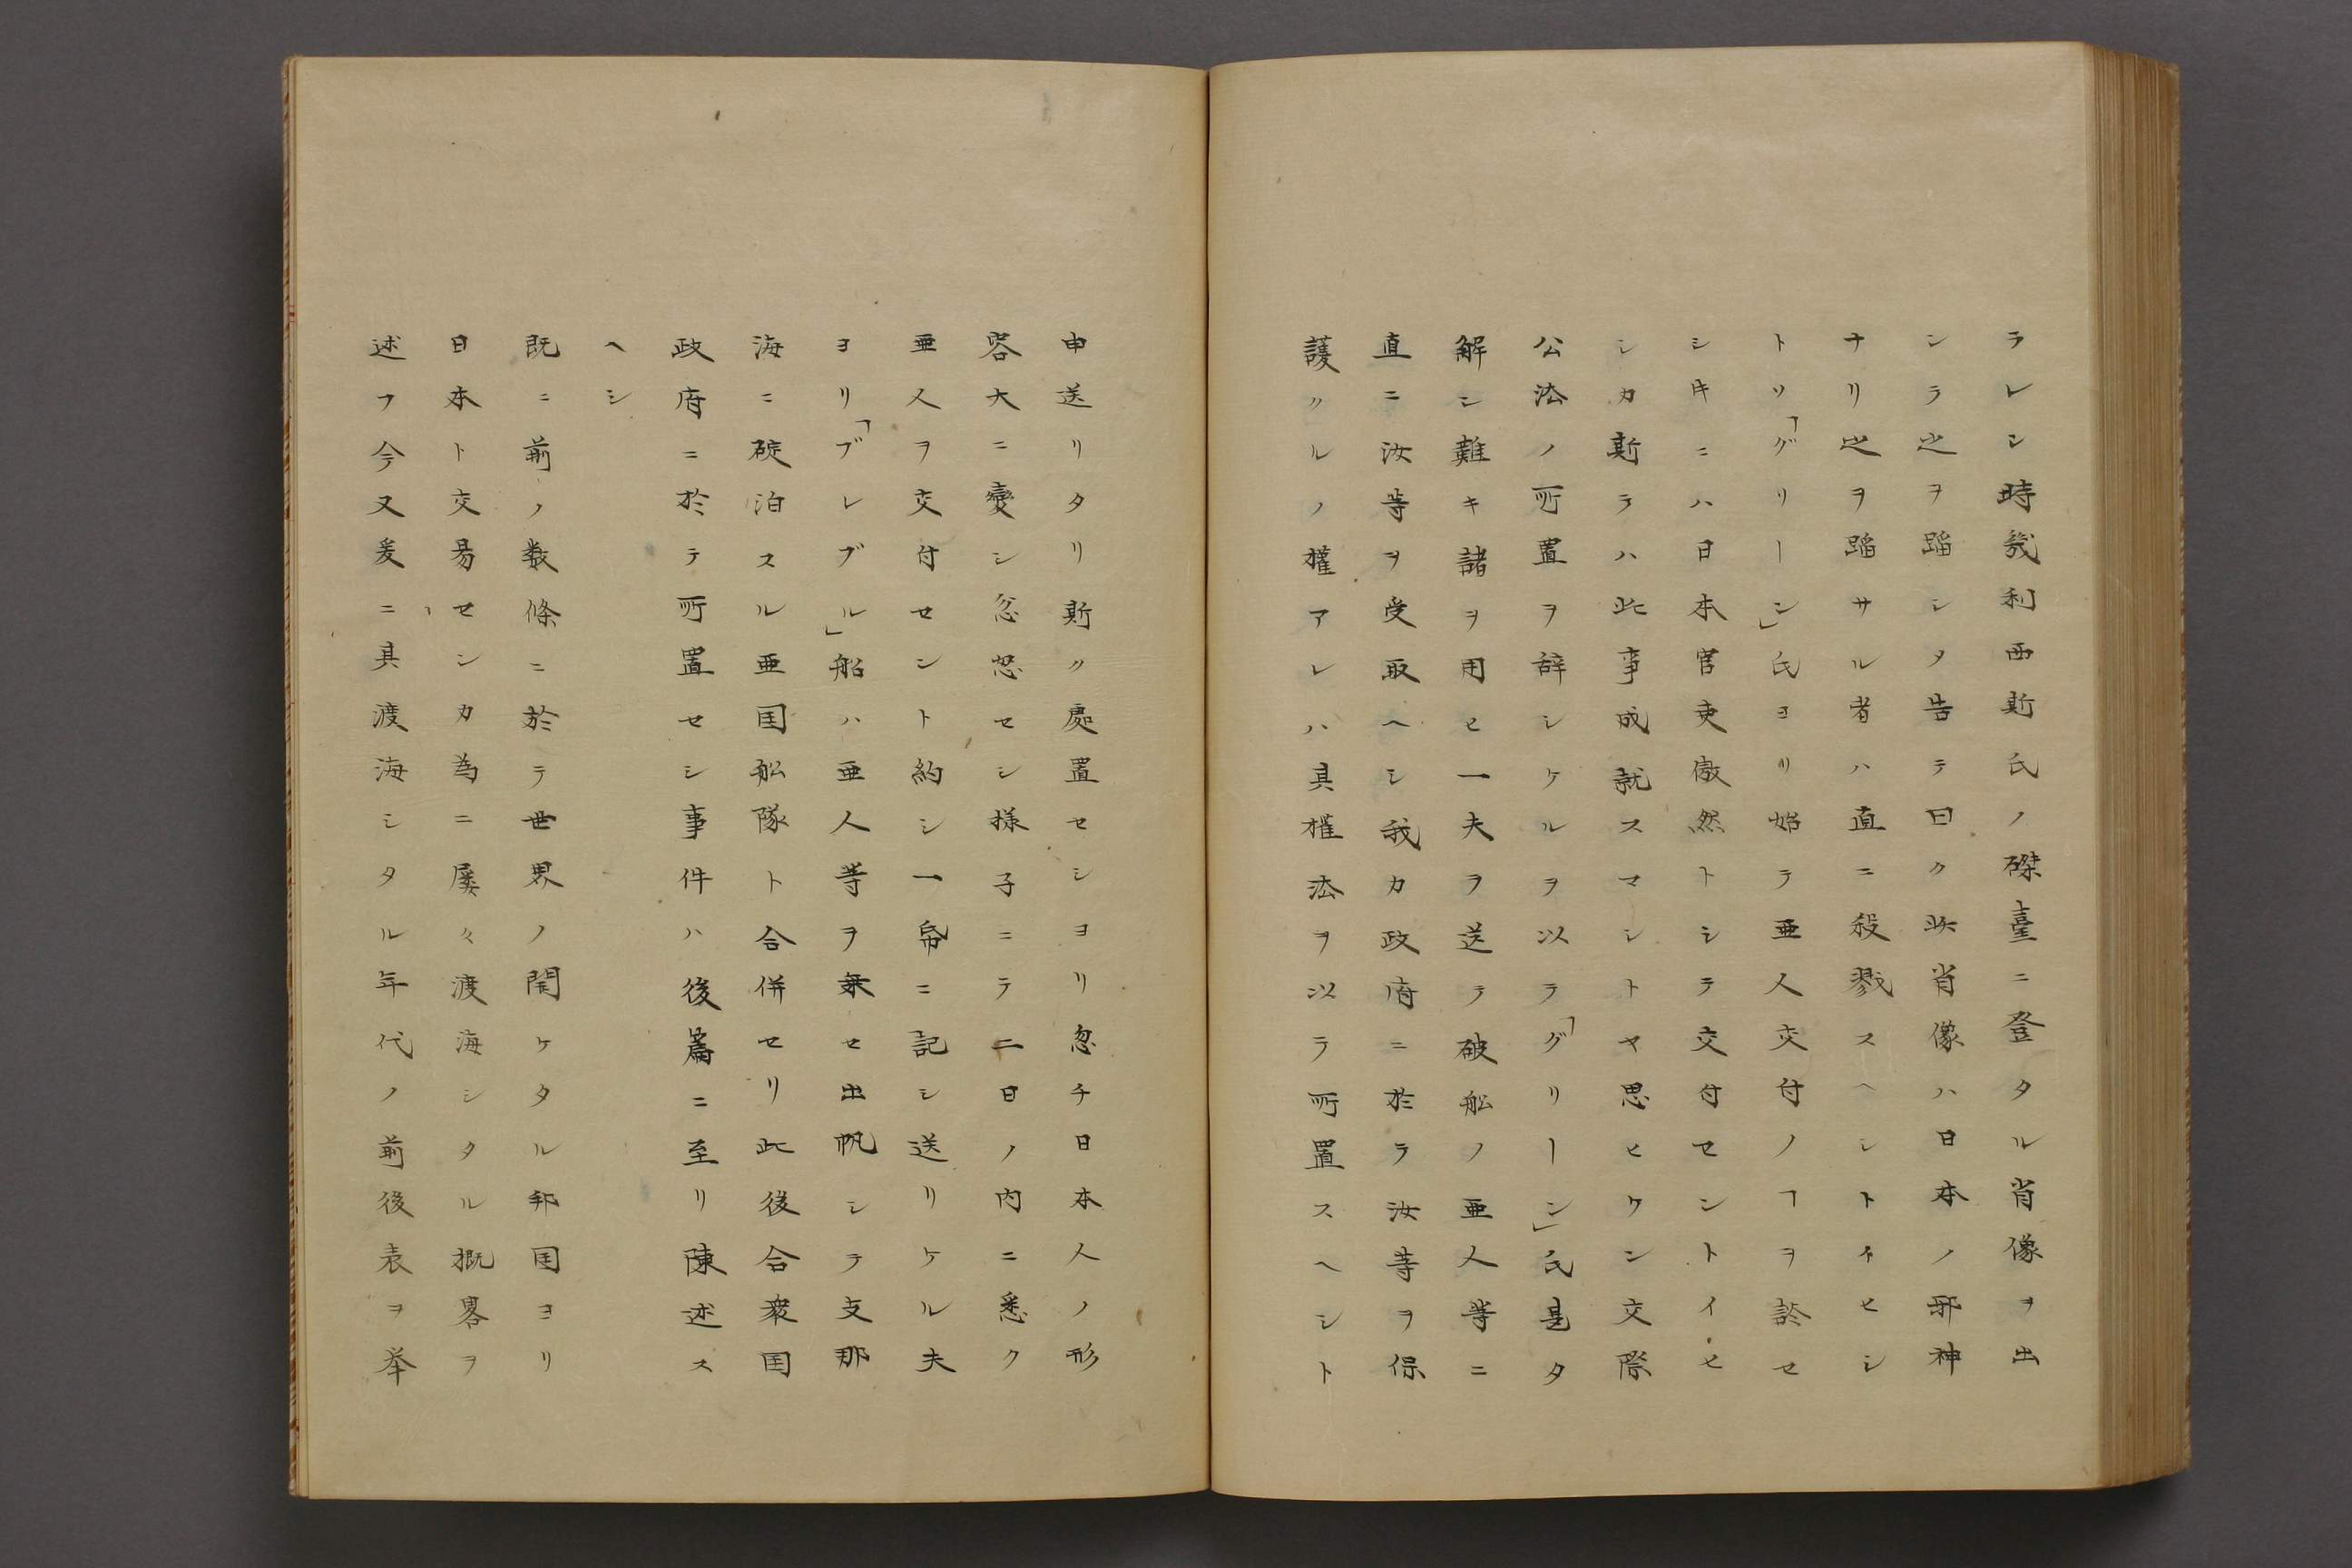 ラレシ時幾利西斯氏ノ磔臺ニ登タル肖像ヲ出
ンラ之ヲ蹈シタ告テ曰ク此肖像ハ日本ノ邪神
ナリ之ヲ蹈サル者ハ直ニ殺戮スヘシトイヒシ
トソ「グリーン」氏ヨリ始テ亜人交付ノヿヲ談セ
シキニハ日本官吏傲然トシテ交付セントイヒ
シカ斯テハ此事成就スマシトヤ思ヒケン交際
公法ノ所置ヲ辞シケルヲ以テ「グリーン」氏是タ
解シ難キ諸ヲ用ヒ一夫ヲ送テ破船ノ亜人等ニ
直ニ汝等ヲ受取ヘシ我カ政府ニ於テ汝等ヲ保
護〃ルノ權アレハ其權法ヲ以テ所置スヘシト
申送リタリ斯〃處置セシヨリ忽チ日本人ノ形
容大ニ變シ忿怒セシ様子ニテ二日ノ内ニ悉ク
亜人ヲ交付セント約シ一帋ニ記シ送リケル夫
ヨリ「ブレブル」船ハ亜人等ヲ乗セ出帆シテ支那
海ニ碇泊スル亜国舩隊ト合併セリ此後合衆国
政府ニ於テ所置セシ事件ハ後篇ニ至リ陳述ス
ヘシ
既ニ前ノ数條ニ於テ世界ノ開ケタル邦国ヨリ
日本ト交易センカ為ニ屡々渡海シタル概畧ヲ
述フ今又爰ニ其渡海シタル年代ノ前後表ヲ举